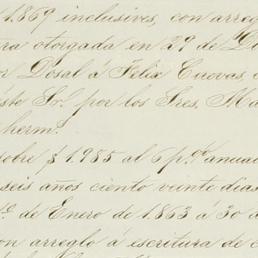 1.869 inclusives, con arreg
ra otorgada en 29 de D
or Dosal á Felix Cuevas, c
ste Sr. por los Sres. Ma
herm.
sobre $1.985 al 6 p.% anua
seis años ciento veinte dias
1º de Enero de 1863 á 30 d
on arreglo á escritura de c